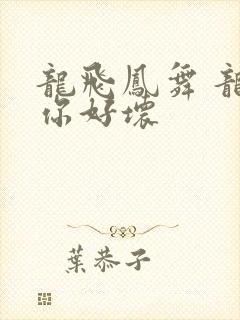 龍飛鳳舞 龍
你好壞
葉恭子